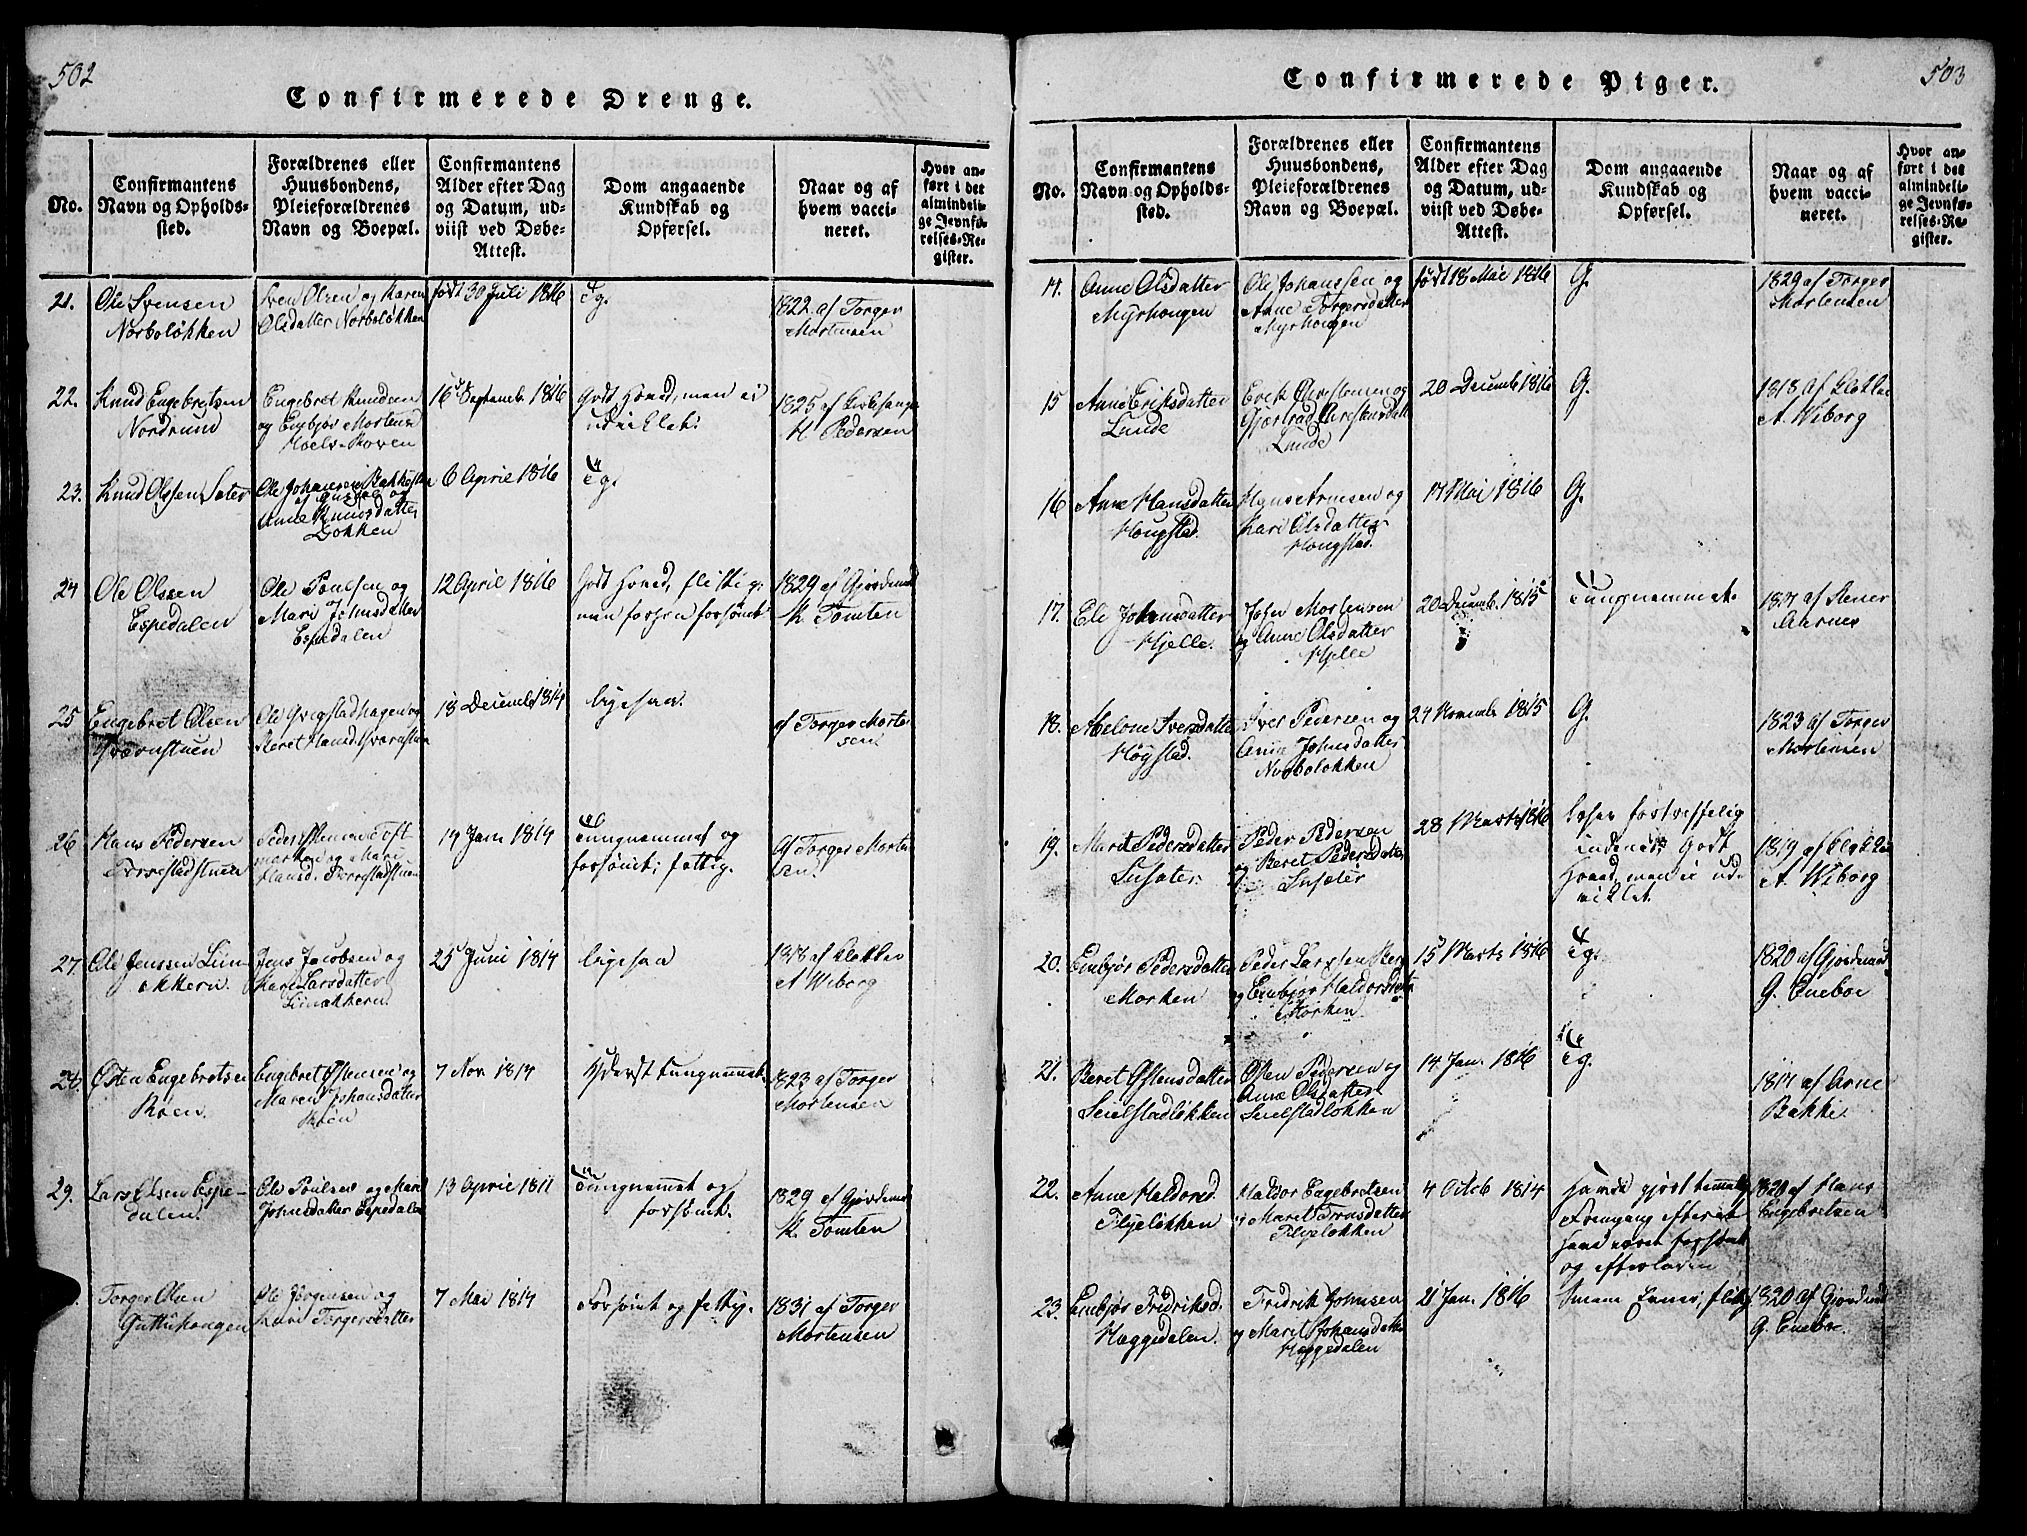 502
Confirmerede Drenge.
No.
Confirmantens
Navn og Opholds-
sted.
Forældrenes eller
Huusbondens,
Pleieforældrenes
Navn og Boepæl.
Confirmantens
Alder efter Dag
og Datum, ud-
viist ved Døbe-
Attest.
Dom angaaende
Kundskab og
Opførsel.
Naar og af
hvem vacci-
neret.
Hvor an-
ført i det
almindeli-
ge Jevnfø-
relses-Re-
gister.
21.
Ole Svensen
Norboløkken
Sven Olsen og Karen
Olsdatter Norboløkken
født 30 Juli 1816
Tg.
1822 af Torger
Mortensen
22.
Knud Engebretsen
Nordrund
Engebret Knudsen
og Engbjør Mortensd
16 Septemb. 1816
Godt Hoved, men ei
udviklet.
1825 af
H. Pedersen
23.
Knud Olssen Sæter
Ole Johansen
og
Anne Knudsdatter
Løkken
6 April 1816
Tg.
24
Ole Olssen
Espedalen
Ole Poulsen og
Mari Johnsdatter
Espedalen
12 April 1816
Godt Hoved, flittig,
men forhen forsømt
1829 af Gjordemd
K. Tomten
25
Engebret Olsen
Qværnstuen
Ole Qvigstadhagen og
Beret Hansd. Qværnstuen
18 Decemb 1814
ligesaa.
af Torger Morten
sen.
26
Hans Pedersen
Forrestadstuen
Peder
og Mari
Hansd. Forrestadstuen
14 Jan 1814
Tungnemmet og
forsømt; fattig.
af Torger Morten
sen.
27
Ole Jenssen Liin-
økkern.
Jens Jacobsen og
Kari Larsdatter
Liinøkkern.
25 Juni 1814
ligesaa
1818 af Klokker
A Wiborg
28
Østen Engebretsen
Roen.
Engebret Østensen og
Maren Johansdatter
Roen
7 Nov 1814
Yderst tungnemmet.
1823 af Torger
Mortensen
29.
Lars Olsen Espe-
dalen.
Ole Poulsen og Mari
Johnsdatter Espedalen
13 April 1811
Tungnemmet og
forsømt.
1829 af Gjordemd
K. Tomten
Torger Olsen
Guttuhougen
Ole Jørgensen og
Kari Torgersdatter
7 Mai 1814
Forsømt og fattig.
1831 af Torger
Mortensen
503
Confirmerede Piger.
No.
Confirmantens
Navn og Opholds-
sted.
Forældrenes eller
Huusbondens,
Pleieforældrenes
Navn og Boepæl.
Confirmantens
Alder efter Dag
og Datum, ud-
viist ved Døbe-
Attest.
Dom angaaende
Kundskab og
Opførsel.
Naar og af
hvem vacci-
neret.
Hvor an-
ført i det
almindeli-
ge Jevnfø-
relses-Re-
gister.
14.
Anne Olsdatter
Myrhougen
Ole Johanssen og
Anne Torgersdatter
Myrhougen
født 18 Mai 1816
G.
1829 af Torger
Mortensen
15
Anne Eriksdatter
Lunde
Erik Christensen og
Gjertrud Christensdatt
Lunde
20 Decemb 1816
G.
1818 af Klokker
A. Wiborg
16
Anne Hansdatter
Hougstad.
Hans Arnesen og
Kari Olsdatter
Hougstad.
17 Mai 1816
G.
17.
Eli Johnsdatter
Hjelle.
John Mortensen
og Anne Olsdatter
Hjelle
20 Decemb. 1815
Tungnemmet.
1817 af
18.
Abelone Iversdatter
Høystad.
Iver Pedersen og
Anne Johnsdatter
Norboløkken
24 Novemb 1815
G.
1823 af Torger
Mortensen
19.
Marit Pedersdatter
Lusæter.
Peder Pedersen
og Beret Pedersdatter
Lusæter
28 Marts 1816
læser fortreffelig
indenad; Godt
Hoved, men ei ud-
viklet.
1819 af Klokker
A. Wiborg
20.
Embjør Pedersdatter
Morken
Peder Larssen
og Embjør Haldorsdatt
Morken
15 Marts 1816
Tg.
1820 af Gjordemd
G. Eneboe
21.
Beret Østensdatter
Seielstadløkken
Østen Pedersen og
Anne Olsdatter
Seielstadløkken
14 Jan. 1816
Tg.
1817 af Arne
Bakke
22.
Anne Haldorsd.
Flyeløkken
Haldor Engebretsen
og Marit Troesdatter
Flyeløkken
4 Octob 1814
Havde gjort temmelig
Fremgang efterat
have været forsømt
og efterladen
1820 af Hans
Engebretsen
23.
Embjør Fridriksd.
Heggedalen.
Fridrik Johnsen
og Marit Johansdatter
Heggedalen
21 Jan. 1816
Smaae Evner, flittig
1820 af Gjordemd
G. Eneboe.